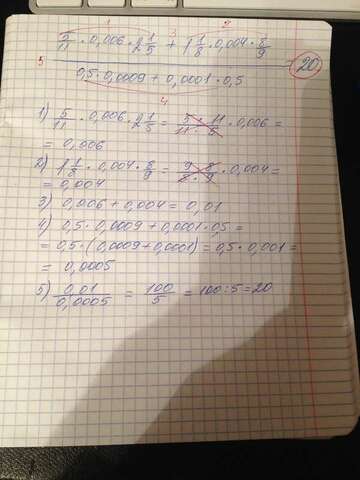 1 3 2
5/11 · 0,006 · 2 1/5 + 1 1/8 · 0,004 · 8/9
5
0,5 · 0,0009 + 0,0001 · 0,5
4
= 20
1) 5/11 · 0,006 · 2 1/5 = 5 · 11/11 · 5 · 0,006 =
= 0,006
2) 1 1/8 · 0,004 · 8/9 = 9 · 8/8 · 9 · 0,004 =
= 0,004
3) 0,006 + 0,004 = 0,01
4) 0,5 · 0,0009 + 0,0001 · 05 =
= 0,5 · (0,0009 + 0,0001) = 0,5 · 0,001 =
= 0,0005
5) 0,01/0,0005 = 100/5 = 100 : 5 = 20